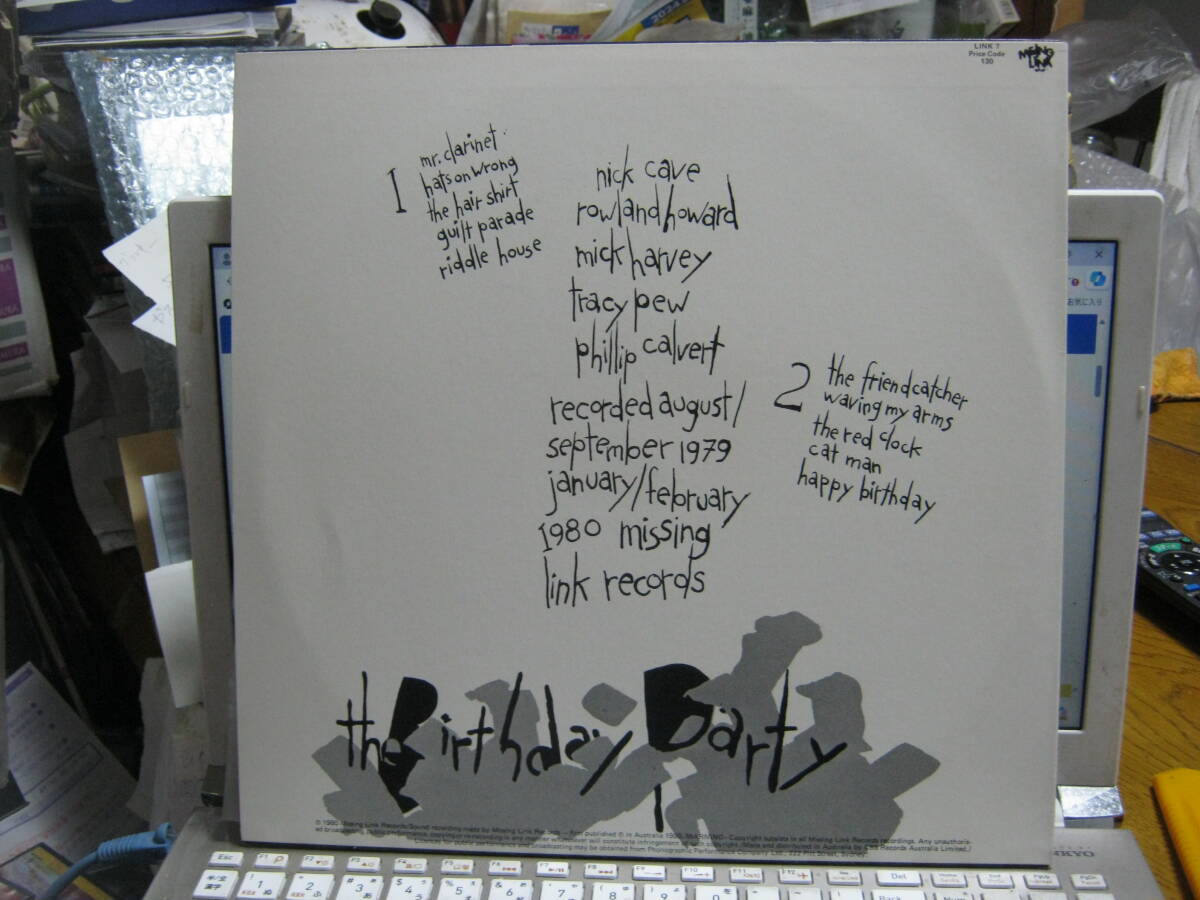 LINK 7
Price Code
130
MISSING LINK
1
mr. clarinet
hats on wrong
the hair shirt
guilt parade
riddle house
nick cave
rowland howard
mick harvey
tracy pew
phillip calvert
recorded august/
september 1979
january/february
1980 missing
link records
2
the friendcatcher
waving my arms
the red clock
cat man
happy birthday
the Birthday Party
© 1980 Missing Link Records/Sound recording made by Missing Link Records — first published © in Australia 1980. WARNING— Copyright subsists in all Missing Link Records recordings. Any unauthoris-
ed broadcasting, public performance, copying or re-recording in any manner whatsoever will constitute infringement of such copyright./Made and distributed in Australia by Records Australia Limited./
Licences for public performance and broadcasting may be obtained from Phonographic Performance Company Ltd., 222 Pitt Street, Sydney.
お気に入り
Esc
F1
F2
F3
F4
F5
F6
F7
F8
F9
F10
F11
F12
Del
半/全
漢字
1
2
3
4
5
6
7
8
9
0
Back